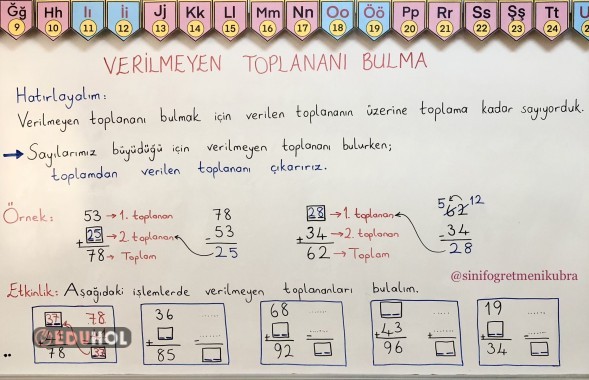 Ğğ Hh Iı İi Jj Kk Ll Mm Nn Oo Öö Pp Rr Ss Şş Tt U
9 10 11 12 13 14 15 16 17 18 19 20 21 22 23 24
VERİLMEYEN TOPLANANI BULMA
Hatırlayalım:
Verilmeyen toplananı bulmak için verilen toplananın üzerine toplama kadar sayıyorduk.
→ Sayılarımız büyüdüğü için verilmeyen toplananı bulurken;
toplamdan verilen toplananı çıkarırız.
Örnek: 53 → 1. toplanan 78 28 → 1. toplanan 5 62 12
+ 25 → 2. toplanan - 53 + 34 → 2. toplanan - 34
78 → Toplam 25 62 → Toplam 28
@sinifogretmenikubra
Etkinlik: Aşağıdaki işlemlerde verilmeyen toplananları bulalım.
37 78 36 ...... 68 ...... ...... 19 ......
EDUHOL + ...... + ...... + 43 ...... + ......
78 37 85 92 96 34